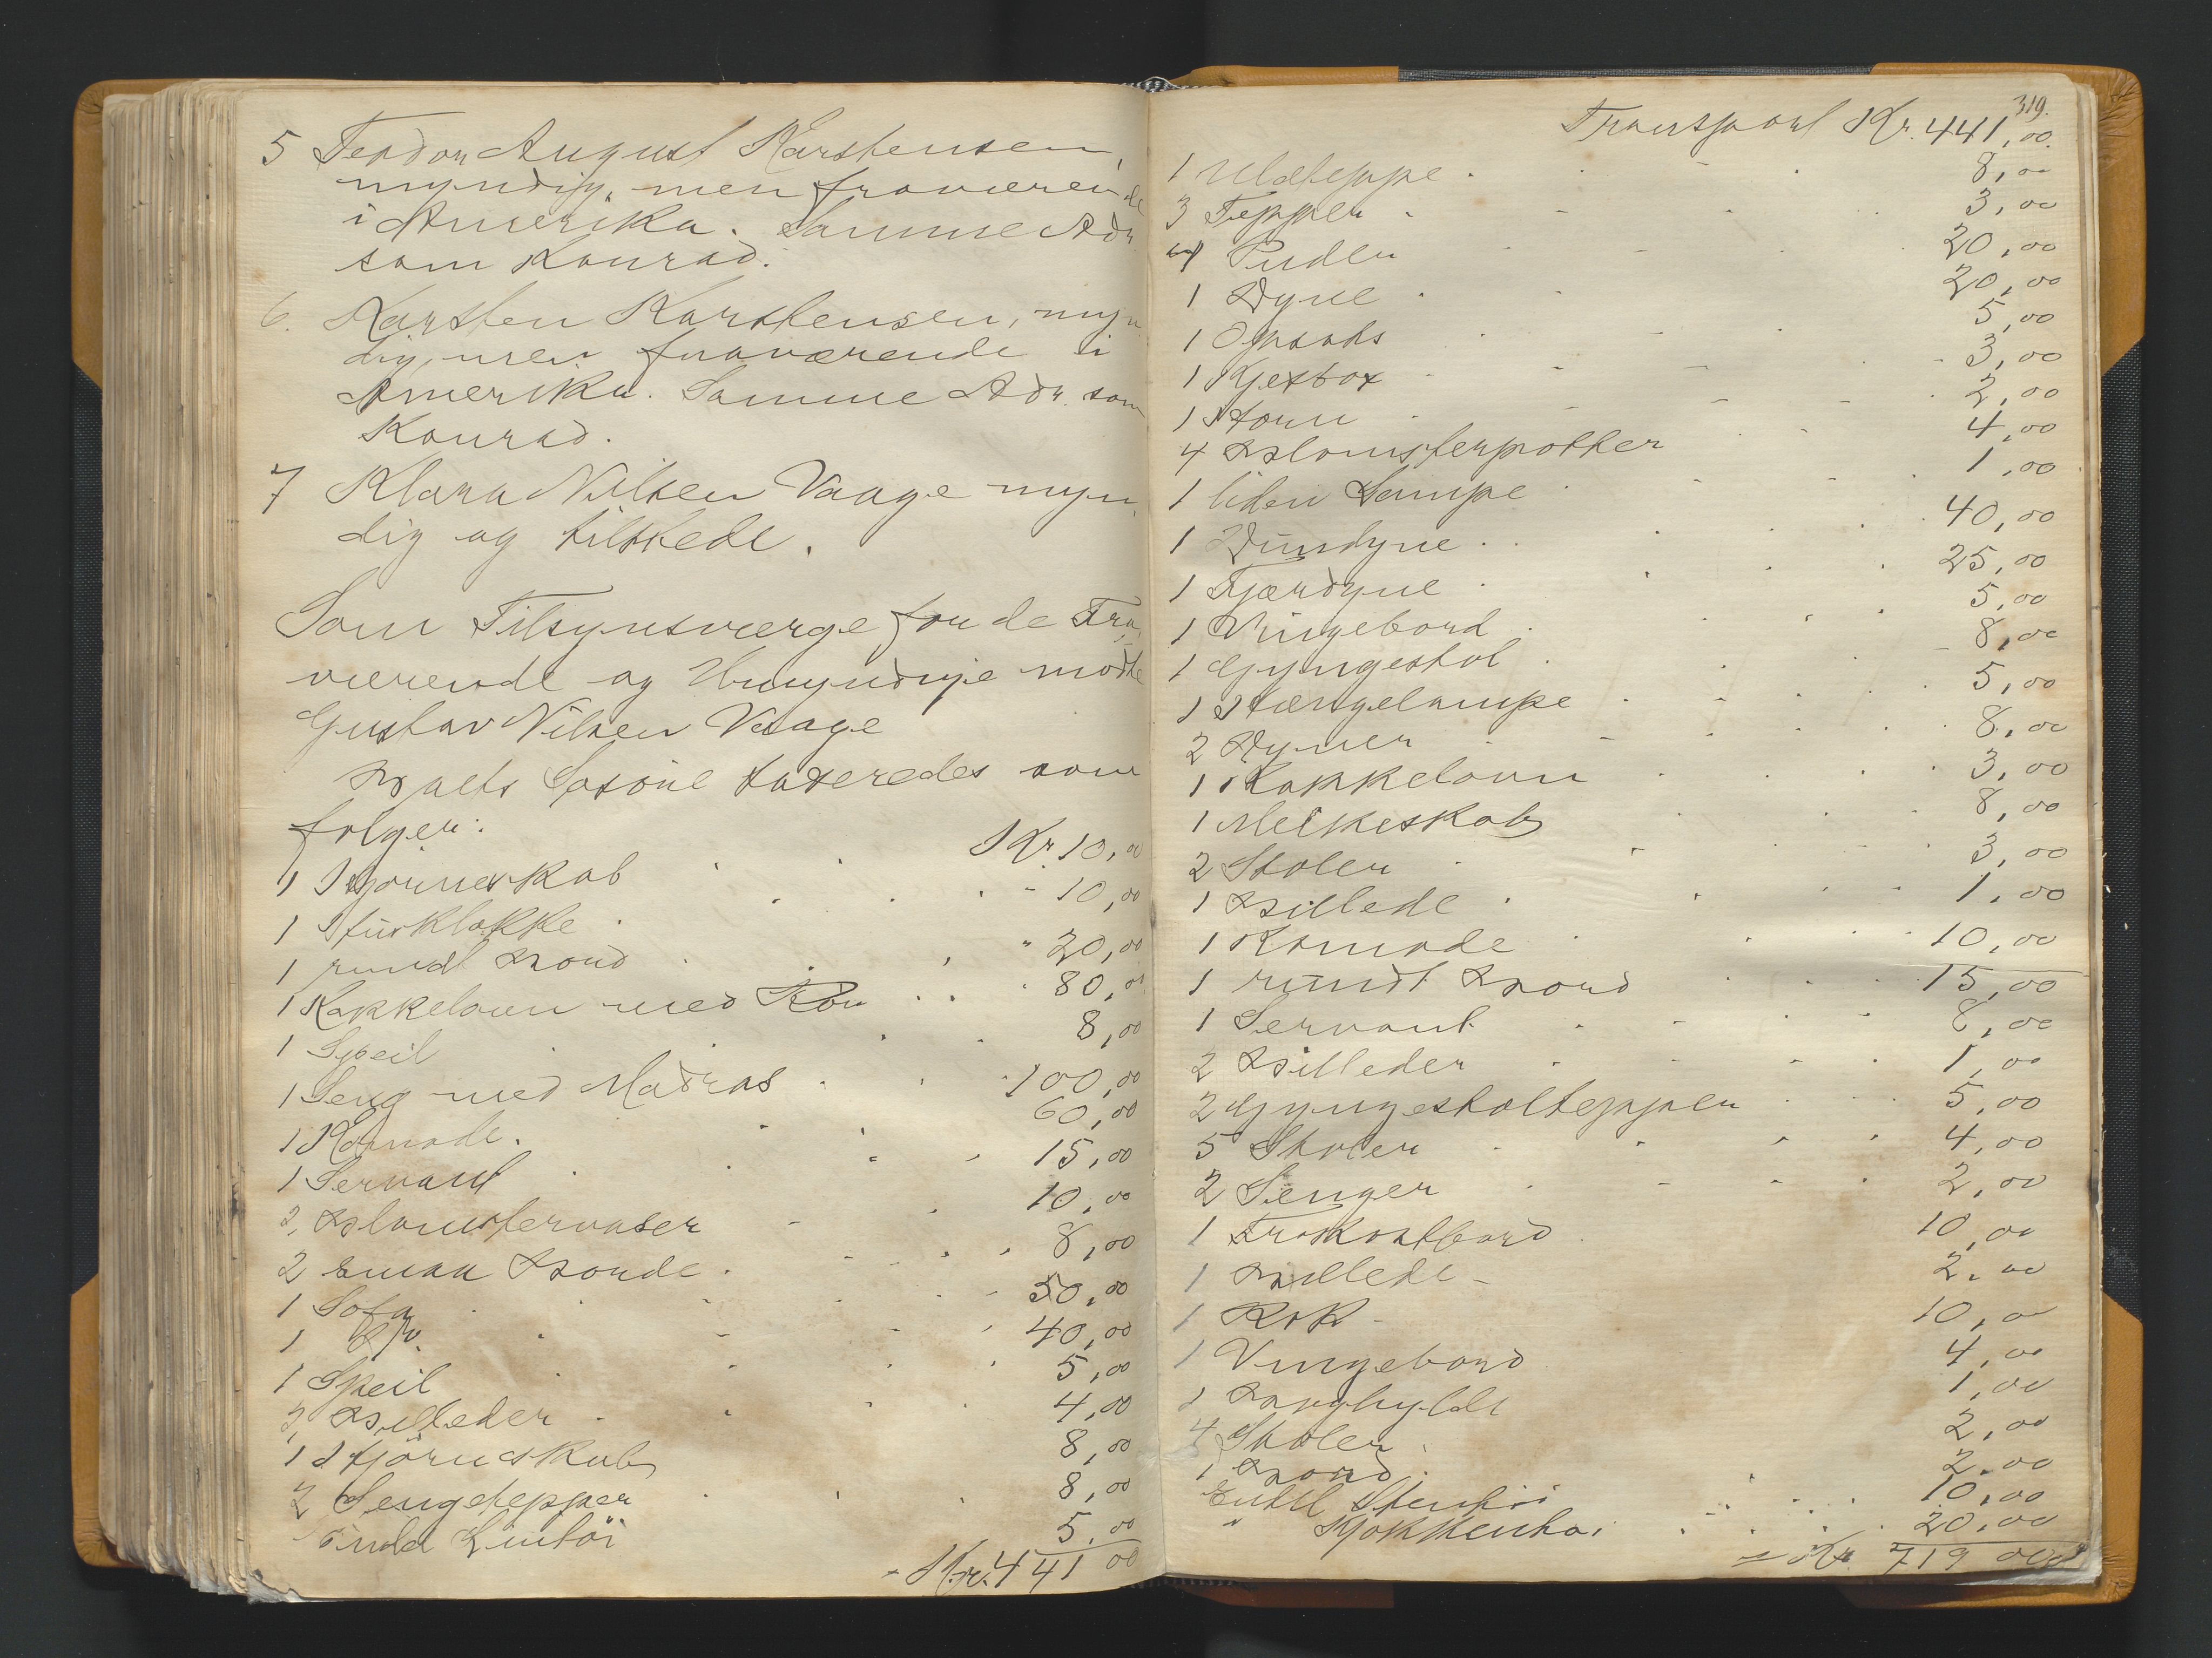 5 Teodor August Karstensen,
myndig, men fraværende
i Amerika. Samme Adr.
som Konrad.
6. Karsten Karstensen, myn
dig, men fraværende i
Amerika. Samme Adr. som
Konrad.
7 Klara Nilsen Vaage myn
dig og tilstede.
Som Tilsynsværge for de Fra
værende og Umyndige mødte
Gustav Nilsen Vaage
Boets Løsöre taxeredes som
følger:
1 Hjørneskab Kr. 10,00
1 Stueklokke - 10,00
1 rundt Bord " 20,00
1 Kakkelovn med Rør 80,00
1 Speil 8,00
1 Seng med Madras 100,00
1 Komode. 60,00
1 Servant 15,00
2 Blomstervaser 10,00
2 smaa Borde. 8,00
1 Sofa 50,00
1 Ur. 40,00
1 Speil 5,00
3 Billeder 4,00
1 Hjørneskab 8,00
2 Sengetepper 8,00
Lintöi 5,00
Kr. 441 00
319.
Transport Kr. 441,00.
1 Uldteppe 8,00
3 Tepper 3,00
4 Puder 20,00
1 Dyne 20,00
1 Opsats 5,00
1 Kjexbox 3,00
1 Horn 2,00
4 Blomsterpotter 4,00
1 liden Lampe 1,00
1 Dundyne 40,00
1 Fjærdyne 25,00
1 Vingebord 5,00
1 Gyngestol 8,00
1 Hængelampe 5,00
2 Dyner 8,00
1 Kakkelovn 3,00
1 Melkeskab 8,00
2 Stoler 3,00
1 Billede 1,00
1 Komode 10,00
1 rundt Bord 15,00
1 Servant 8,00
2 Billeder 1,00
2 Gyngestoltepper 5,00
5 Stoler 4,00
2 Senger 2,00
1 Frokostbord 10,00
1 Billede 2,00
1 Rok 10,00
1 Vingebord 4,00
1 1,00
4 Stoler 2,00
1 Bord 2,00
Endel Stentöi 10,00
" Kjøkkentöi 20,00
Kr. 719 00